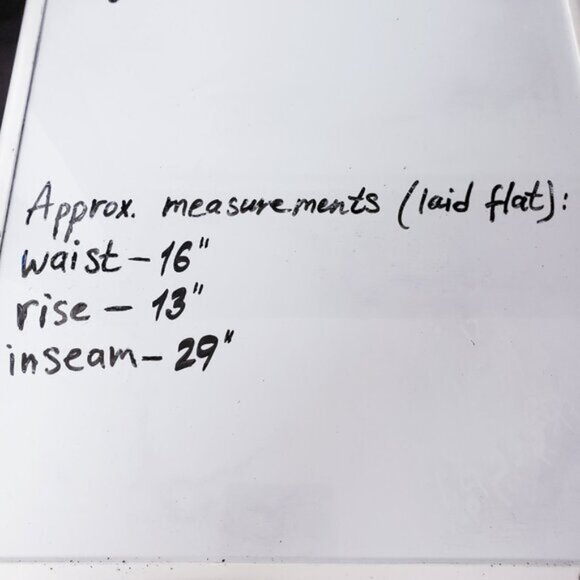 Approx. measurements (laid flat):
waist - 16"
rise - 13"
inseam - 29"